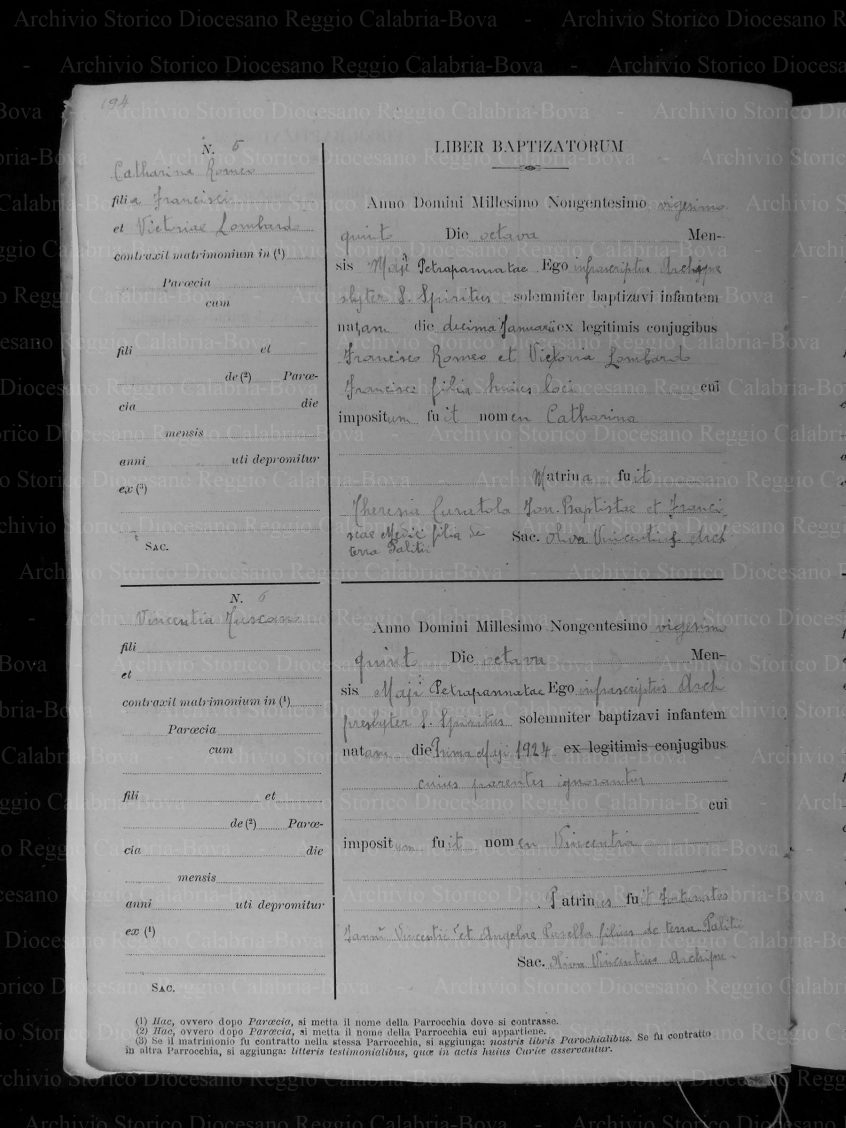 Archivio Storico Diocesano Reggio Calabria-Bova - Archivio Storico Diocesano Reggio Calabria-Bova
194
N. 5
Catharina Romeo
filia Francisci
et Victoriae Lombardo
contraxit matrimonium in (¹)
Parœcia
cum
fili et
de (²) Parœ-
cia die
mensis
anni uti depromitur
ex (³)
Sac.
LIBER BAPTIZATORUM
Anno Domini Millesimo Nongentesimo vigesimo
quint Die octava Men-
sis Maji Petrapannatae Ego infrascriptus Archipre
sbyter S. Spiritus solemniter baptizavi infantem
natam die decima Januarii ex legitimis conjugibus
Francisco Romeo et Victoria Lombardo
Francisci filia huius loci cui
impositum fuit nomen Catharina
Matrina fuit
Theresia Ion. Baptistae et Franci
scae Medici filia de
terra Palitii
Sac. Oliva Vincentius Arch
N. 6
Vincentia Tuscano
fili
et
contraxit matrimonium in (¹)
Parœcia
cum
fili et
de (²) Parœ-
cia die
mensis
anni uti depromitur
ex (¹)
Sac.
Anno Domini Millesimo Nongentesimo vigesim
quint Die octava Men-
sis Maji Petrapannatae Ego infrascriptus Arch
presbyter S. Spiritus solemniter baptizavi infantem
natam die Prima Maji 1924 ex legitimis conjugibus
cuius parentes ignorantur
cui
impositum fuit nomen Vincentia
Patrinus fuit Fortunatos
Vincentii et Angelae filius de terra Palitii
Sac. Oliva Vincentius Archipr
(1) Hac, ovvero dopo Parœcia, si metta il nome della Parrocchia dove si contrasse.
(2) Hac, ovvero dopo Parœcia, si metta il nome della Parrocchia cui appartiene.
(3) Se il matrimonio fu contratto nella stessa Parrocchia, si aggiunga: nostris libris Parochialibus. Se fu contratto
in altra Parrocchia, si aggiunga: litteris testimonialibus, quæ in actis huius Curiæ asservantur.